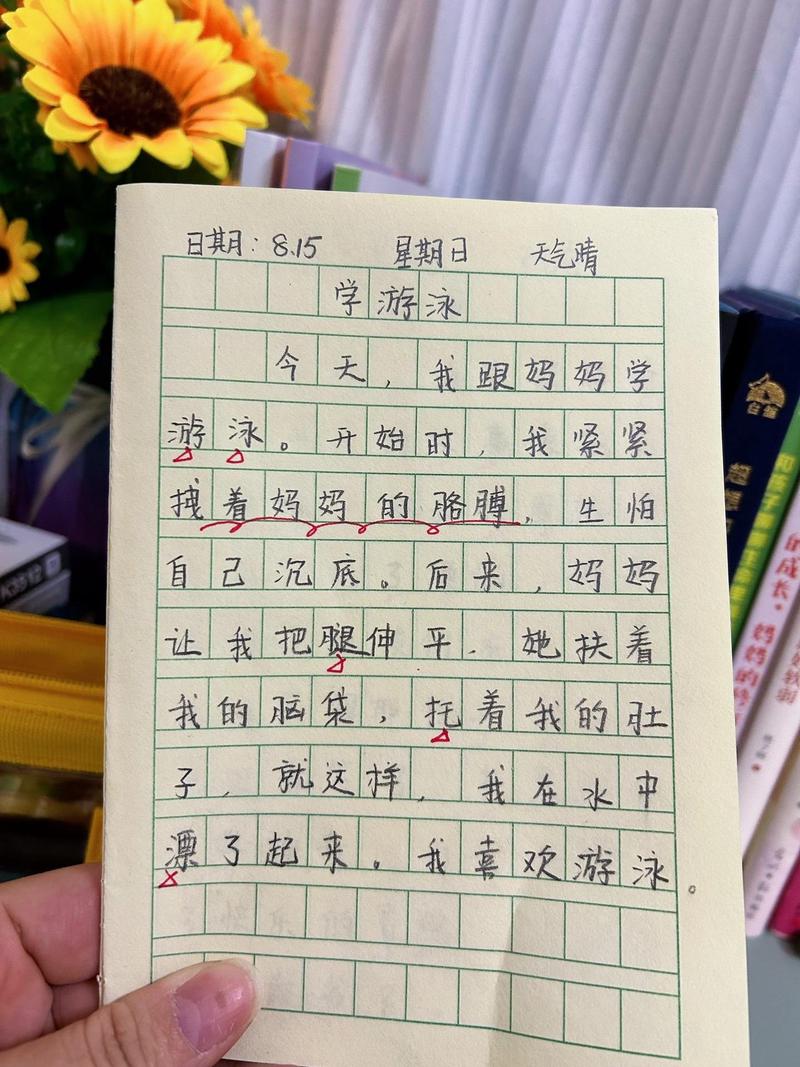 日期：8.15 星期日 天气晴
学游泳
今天，我跟妈妈学
游泳。开始时，我紧紧
拽着妈妈的胳膊，生怕
自己沉底。后来，妈妈
让我把腿伸平，她扶着
我的脑袋，托着我的肚
子，就这样，我在水中
漂了起来。我喜欢游泳。
K3512
和孩子
的成长，妈妈的